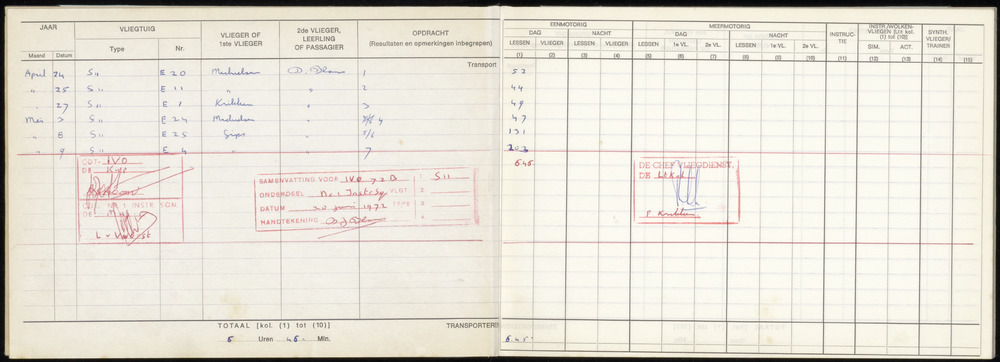 JAAR VLIEGTUIG VLIEGER OF 1ste VLIEGER 2de VLIEGER, LEERLING OF PASSAGIER OPDRACHT (Resultaten en opmerkingen inbegrepen)
Maand Datum Type Nr.
Transport
April 24 S11 E 20 Michielsen 1
" 25 S11 E 11 " " 2
" 27 S11 E 1 Krikken " 3
Mei 3 S11 E 24 Michielsen " 4
" 8 S11 E 25 Gips " 5/6
" 9 S11 E 4 " " 7
COT- IVO
DE Kap
CDT. NR 1 INSTR SQN.
DE Maj
SAMENVATTING VOOR IVO 72B
ONDERDEEL Nr 1 Instr Sq
DATUM 20 juni 1972
HANDTEKENING
VLGT TYPE
1 S11
2
3
4
TOTAAL [kol. (1) tot (10)] TRANSPORTEREN
5 Uren 45 Min.
EENMOTORIG MEERMOTORIG INSTRUCTIE INSTR/WOLKEN-VLIEGEN (Uit kol. (1) tot (10)) SYNTH. VLIEGER/TRAINER
DAG NACHT DAG NACHT
LESSEN VLIEGER LESSEN VLIEGER LESSEN 1e VL. 2e VL. LESSEN 1e VL. 2e VL. SIM. ACT.
(1) (2) (3) (4) (5) (6) (7) (8) (9) (10) (11) (12) (13) (14) (15)
52
44
49
47
131
203
5.45
DE CHEF VLIEGDIENST,
DE Lt Kol
P Krikken
5.45